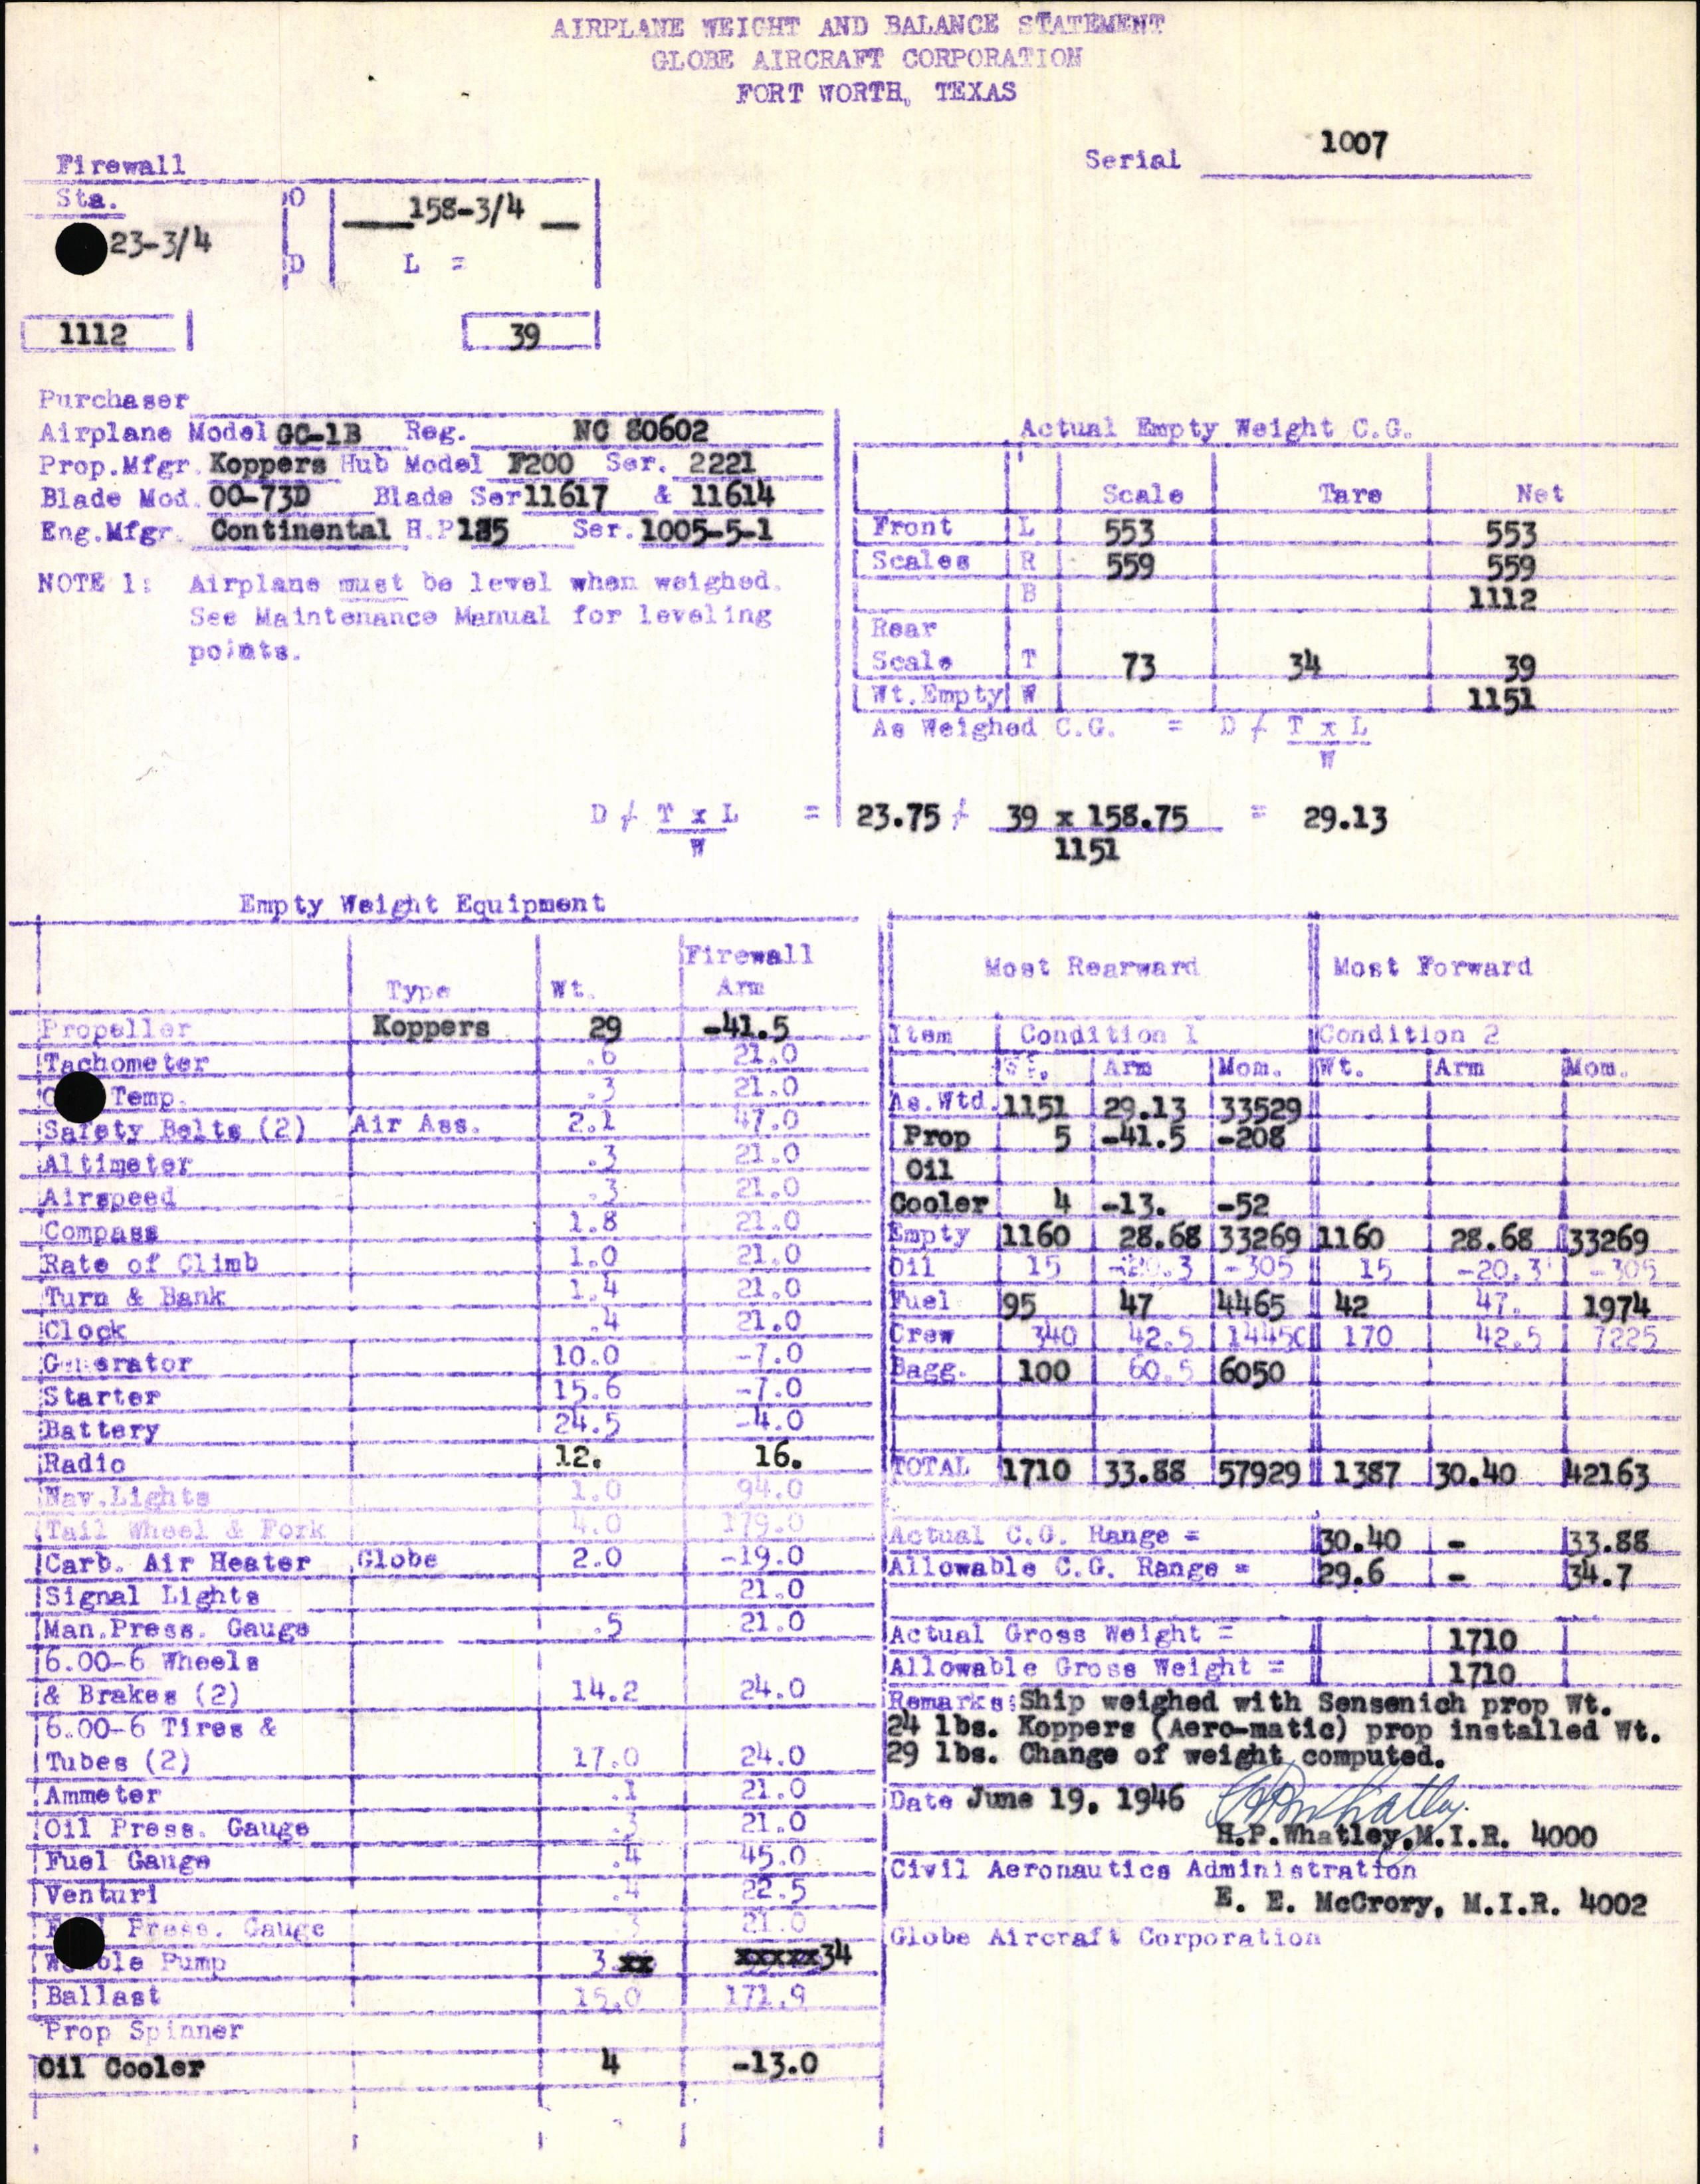 AIRPLANE WEIGHT AND BALANCE STATEMENT
GLOBE AIRCRAFT CORPORATION
FORT WORTH, TEXAS
Serial 1007
Firewall
Sta. O 158-3/4
23-3/4 D L =
1112 39
Purchaser
Airplane Model GC-1B Reg. NC 80602
Prop.Mfgr. Koppers Hub Model F200 Ser. 2221
Blade Mod. 00-73D Blade Ser 11617 & 11614
Eng.Mfgr. Continental H.P. Ser. 1005-5-1
NOTE 1: Airplane must be level when weighed.
See Maintenance Manual for leveling
points.
Actual Empty Weight C.G.
Scale Tare Net
Front L 553 553
Scales R 559 559
B 1112
Rear
Scale T 73 34 39
Wt.Empty W 1151
As Weighed C.G. = D / T x L
W
D / T x L = 23.75 / 39 x 158.75 = 29.13
W 1151
Empty Weight Equipment
Type Wt. Firewall Arm
Propeller Koppers 29 -41.5
Tachometer .6 21.0
Temp. .3 21.0
Safety Belts (2) Air Ass. 2.1 47.0
Altimeter .3 21.0
Airspeed .3 21.0
Compass 1.8 21.0
Rate of Climb 1.0 21.0
Turn & Bank 1.4 21.0
Clock .4 21.0
Generator 10.0 -7.0
Starter 15.6 -7.0
Battery 24.5 -4.0
Radio 12. 16.
Nav.Lights 1.0 94.0
Tail Wheel & Fork 4.0 179.0
Carb. Air Heater Globe 2.0 -19.0
Signal Lights 21.0
Man.Press. Gauge .5 21.0
6.00-6 Wheels
& Brakes (2) 14.2 24.0
6.00-6 Tires &
Tubes (2) 17.0 24.0
Ammeter .1 21.0
Oil Press. Gauge .3 21.0
Fuel Gauge .4 45.0
Venturi .4 22.5
Press. Gauge .3 21.0
Pump 3.xx xxxxx34
Ballast 15.0 171.9
Prop Spinner
Oil Cooler 4 -13.0
Most Rearward Most Forward
Item Condition 1 Condition 2
Wt. Arm Mom. Wt. Arm Mom.
As.Wtd. 1151 29.13 33529
Prop 5 -41.5 -208
Oil
Cooler 4 -13. -52
Empty 1160 28.68 33269 1160 28.68 33269
Oil 15 -20.3 -305 15 -20.3 -305
Fuel 95 47 4465 42 47. 1974
Crew 340 42.5 14450 170 42.5 7225
Bagg. 100 60.5 6050
TOTAL 1710 33.88 57929 1387 30.40 42163
Actual C.G. Range = 30.40 - 33.88
Allowable C.G. Range = 29.6 - 34.7
Actual Gross Weight = 1710
Allowable Gross Weight = 1710
Remarks: Ship weighed with Sensenich prop Wt.
24 lbs. Koppers (Aero-matic) prop installed Wt.
29 lbs. Change of weight computed.
Date June 19, 1946 HPWhatley
H.P.Whatley,M.I.R. 4000
Civil Aeronautics Administration
E. E. McCrory, M.I.R. 4002
Globe Aircraft Corporation